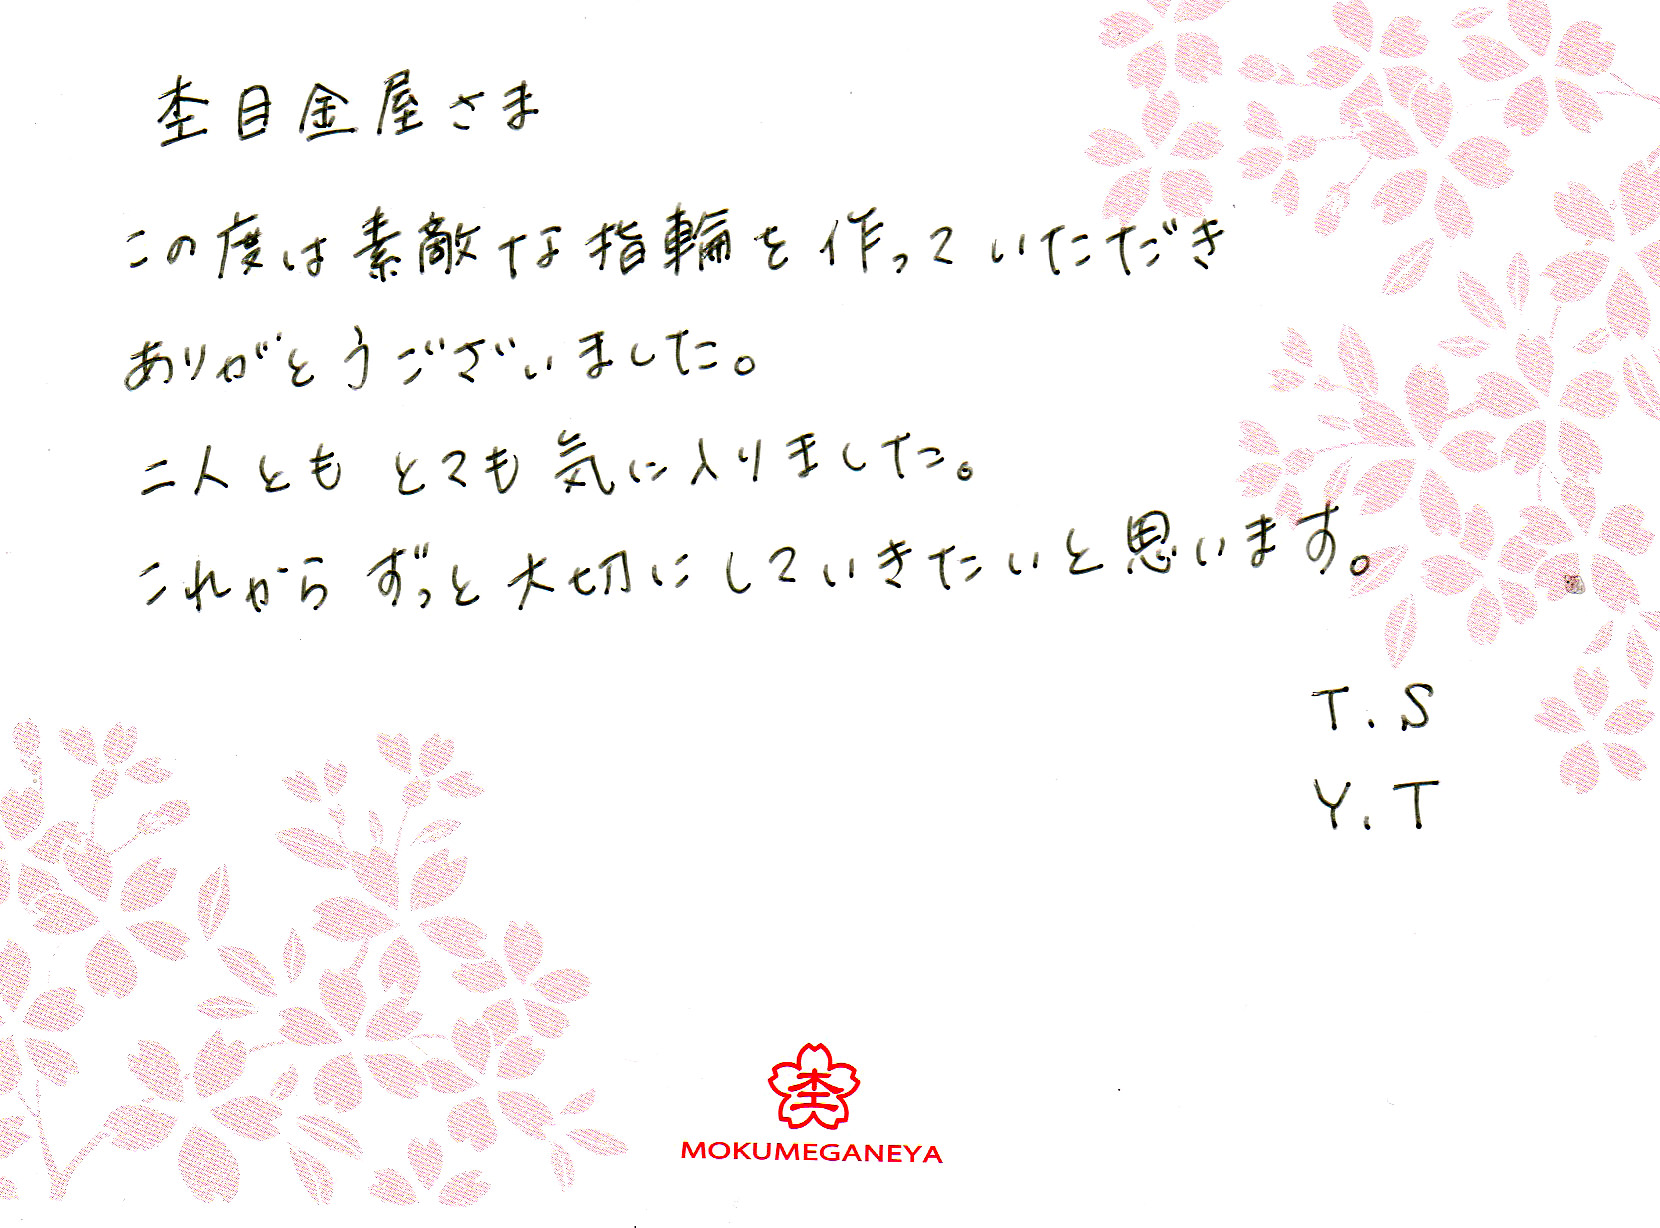 杢目金屋さま
この度は素敵な指輪を作っていただき
ありがとうございました。
二人とも とても気に入りました。
これから ずっと大切にしていきたいと思います。
T.S
Y.T
杢
MOKUMEGANEYA